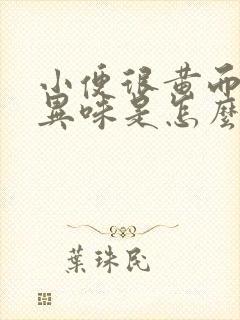 小便很黄而
異味是怎麼
葉珠民